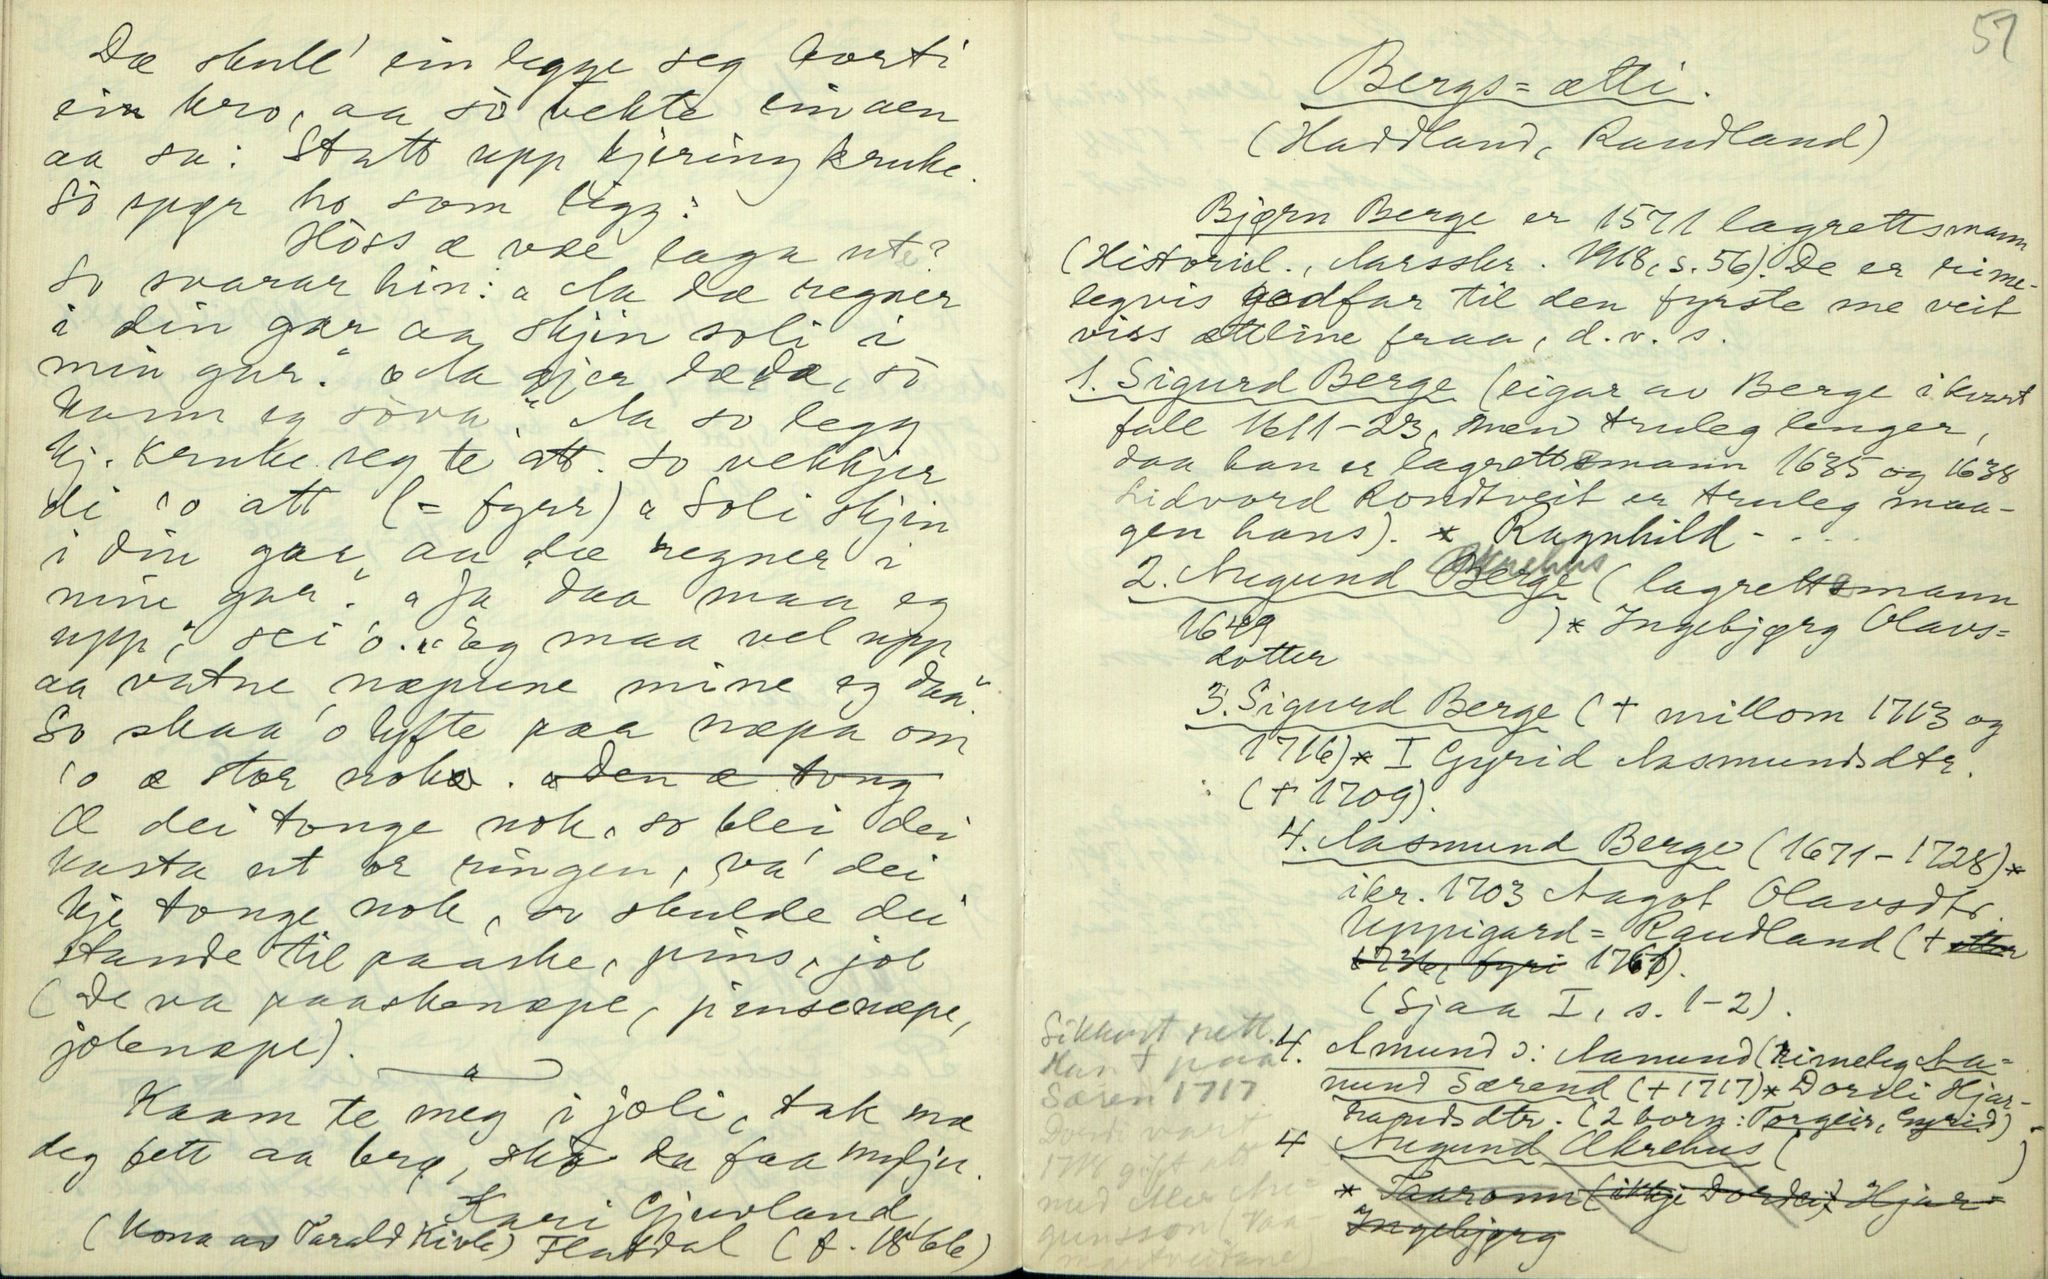 Dæ skull' ein legge seg borti
ein kro, aa sò vekte ein aen
aa sa: Statt upp kjering kruke.
Sò spyr ho som ligg:
Höss æ væe laga ute?
So svarar hin: "Aa dæ regner
i din gar aa skjin soli i
min gar." "Aa gjer dæ da, sò
kann eg sòva" Aa so legg
kj. kruke seg te att. So vekkjer
di 'o att (= fyrr) "Soli skjin
i din gar, aa dæ regner i
min gar." "Ja daa maa eg
upp," sei 'o. "Eg maa vel upp
aa vatne næpune mine eg daa".
So skaa 'o lyfte paa næpa om
'o æ stor nok. Den æ tong
Æ dei tonge nok, so blei dei
kasta ut or ringen, va' dei
kje tonge nok, so skulde dei
stande til paaske, pins, jol
(De va paaskenæpe, pinsenæpe,
jolenæpe).
Kaam te meg i joli, tak mæ
deg fett aa brø, ska du faa mylju.
Kari Gjuvland,
(Kona av Tarald Kivle) Flatdal (f. 1866)
57
Bergs=ætti.
(Haddland, Raudland)
Bjørn Berge er 1571 lagrettsmann
(Historiel., Aarsskr. 1918, s. 56). De er rime-
legvis godfar til den fyrste me veit
viss ættline fraa, d. v. s.
1. Sigurd Berge (eigar av Berge i kvart
fall 1611-23, men truleg lenger,
daa han er lagrettsmann 1635 og 1638
Lidvord Rondtveit er truleg maa-
gen hans). * Ragnhild - . . .
2. Augund Berge (lagrettsmann
1649 ) * Ingebjørg Olavs=
dotter
3. Sigurd Berge (+ millom 1713 og
1716) * I Gyrid Aasmundsdtr.
(+ 1709).
4. Aasmund Berge (1671-1728) *
ikr. 1703 Aagot Olavsdtr.
Uppigard=Raudland (+ etter
fyri 1761).
(Sjaa I, s. 1-2).
4. Amund ɔ: Aamund (rimeleg Aa=
mund Særend (+ 1717) * Dordi Hjar-
trapsdtr. (2 born: Torgeir, Gyrid)
4 Augund Økrehus ( )
* Taaronn (ikkje Dordei) Hjar=
Ingebjørg
Sikkert rett.
Han + paa
Særen 1717.
Dordi vart
1718 gift att
med